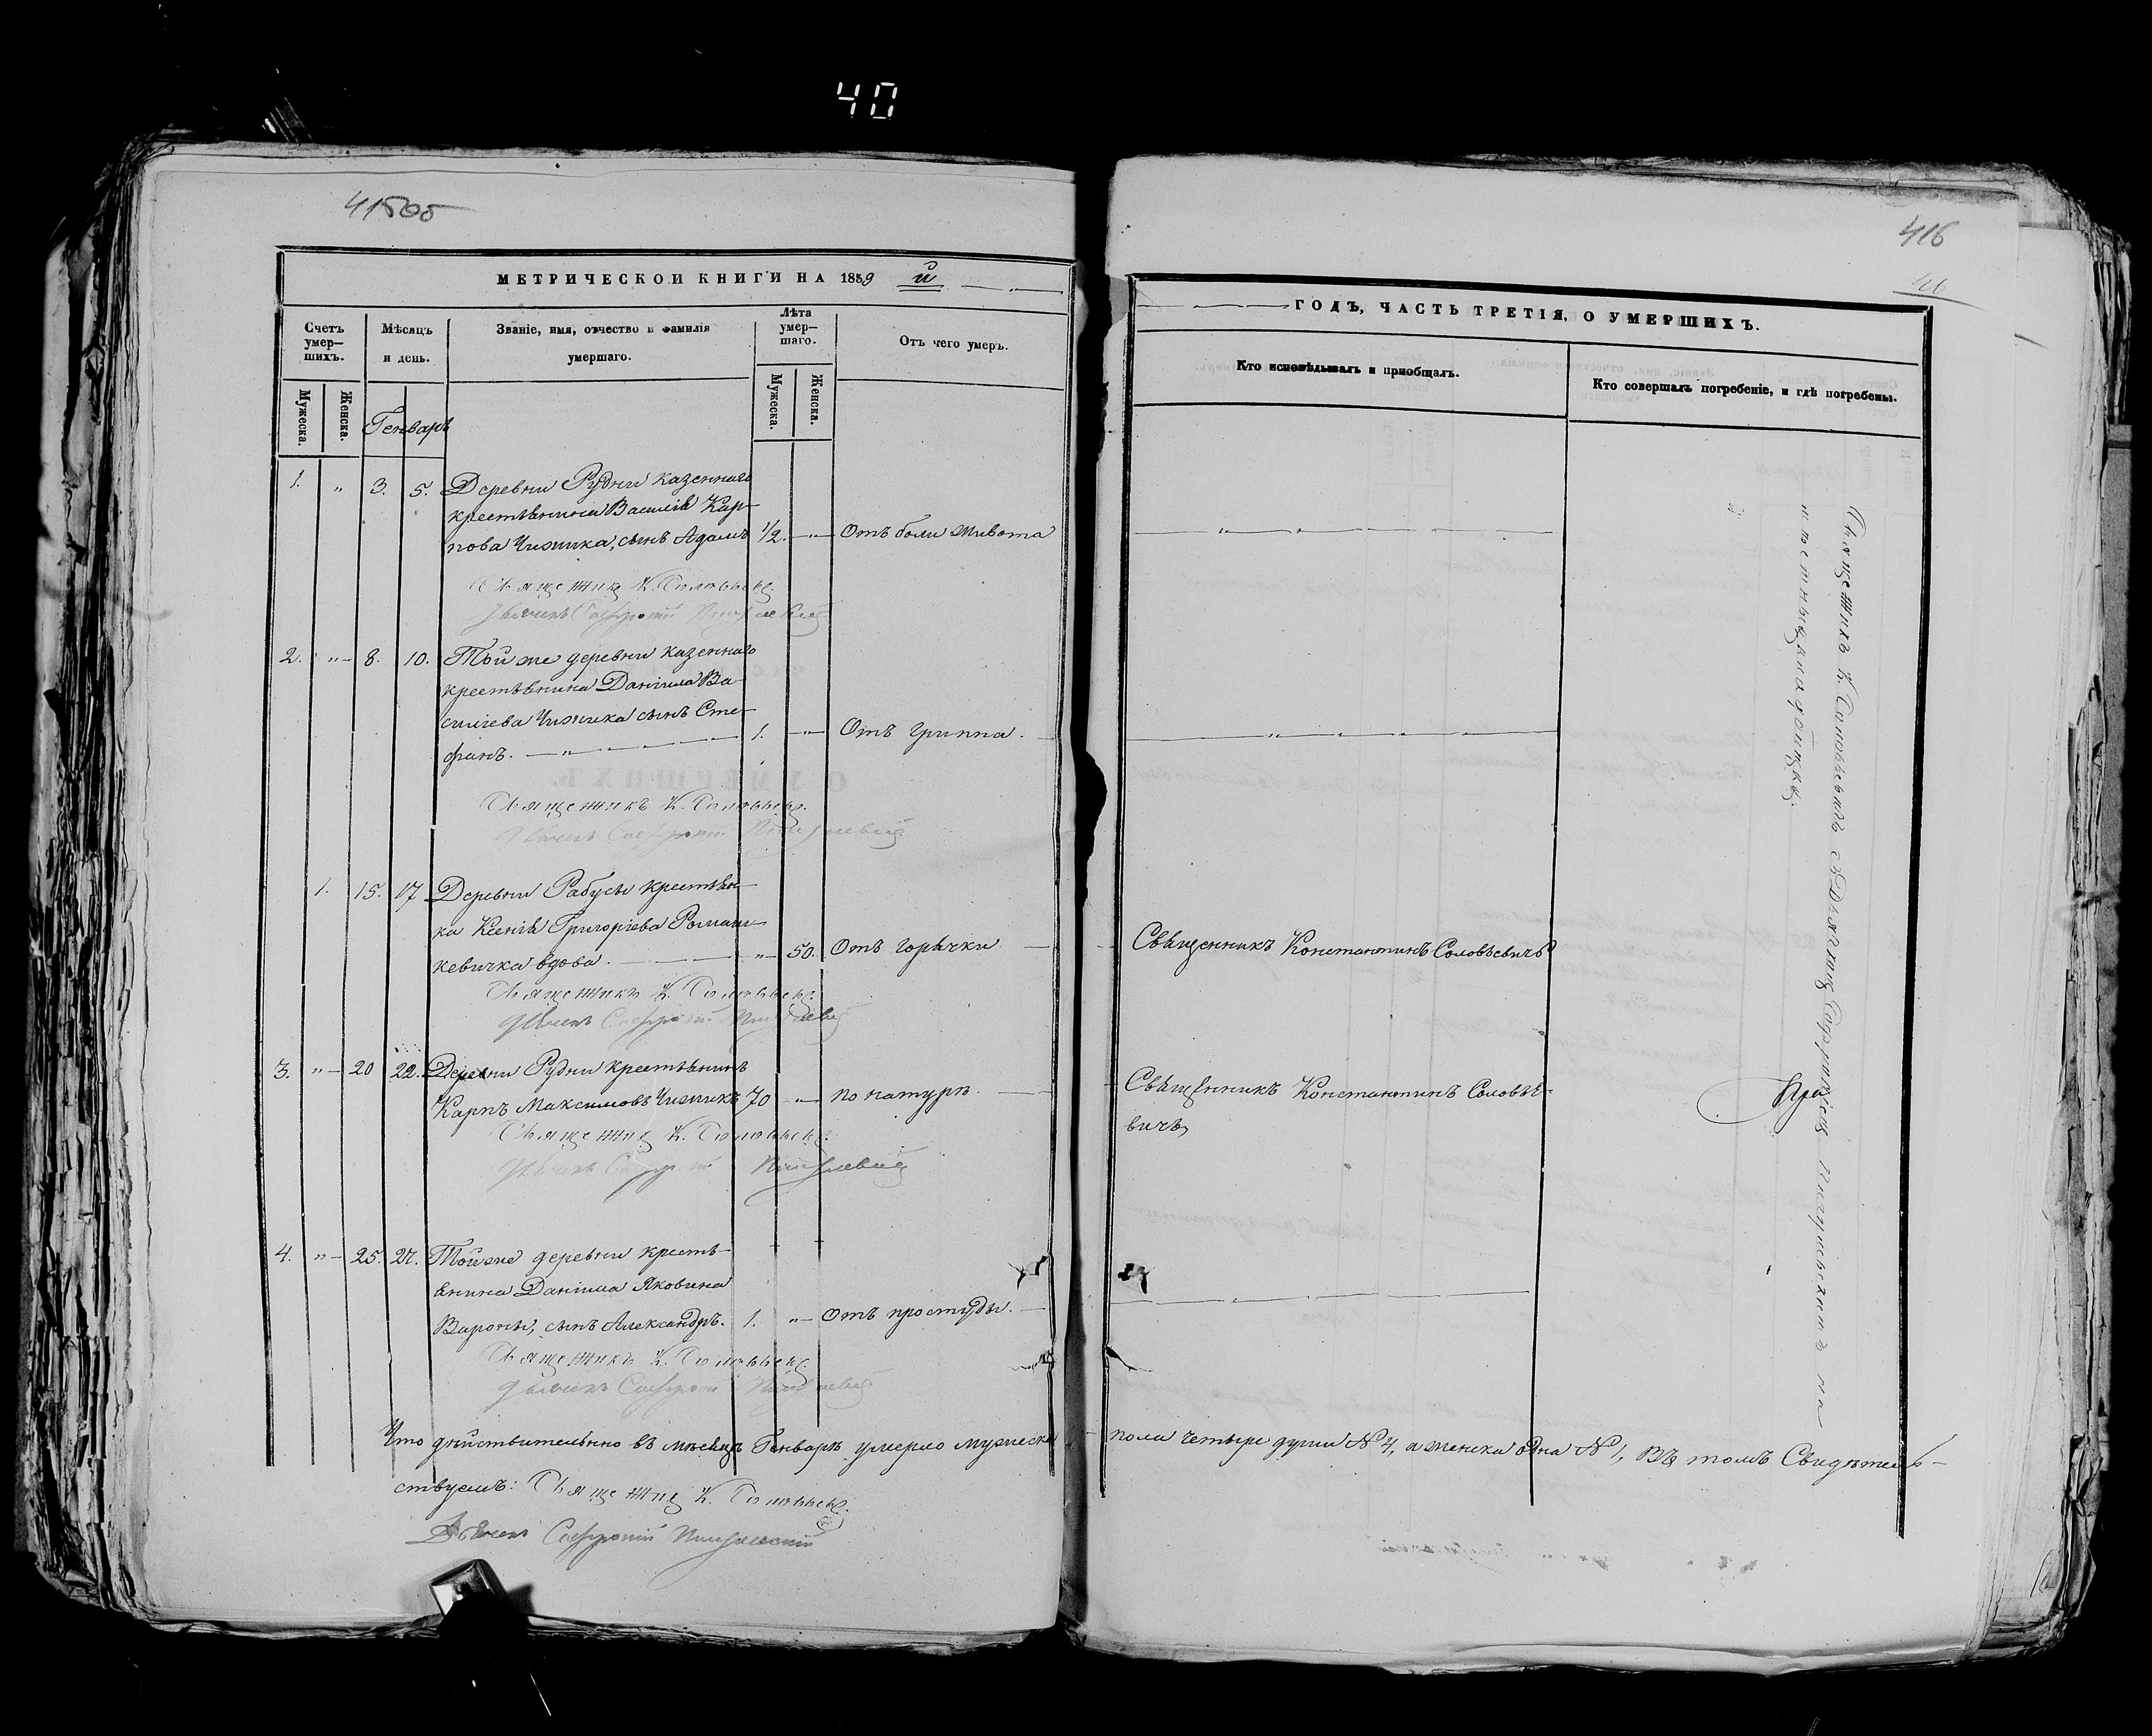 40
41505
МЕТРИЧЕСКОЙ КНИГИ НА 1859 й
Счетъ умер—шихъ.
Мѣсяцъ и день.
Званіе, имя, отчество и фамилія умершаго.
Лѣта умер—шаго.
Отъ чего умеръ.
Мужеска.
Женска.
Генварь
Мужеска.
Женска.
1. " 3. 5. Деревни Рудни казеннаго
крестьянина Василія Кар-
пова Чижика, сынъ Адамъ 1/2. — " — Отъ боли живота
Священникъ К. Соловьев
Дьячекъ Софроній
2. " 8. 10. Той же деревни казеннаго
крестьянина Даніила Ва-
силіева Чижика сынъ Сте-
фанъ. — " — 1. — " — Отъ гриппа.
Священникъ К. Соловьев
Дьячекъ Софроній
1. 15. 17 Деревни Рабусы крестьян-
ка Ксенія Григоріева Роман-
кевичка вдова. — " — 50. Отъ горячки
Священникъ К. Соловьев
Дьячекъ Софроній
3. " 20 22. Деревни Рудни крестьянинъ
Карпъ Максимовъ Чижикъ 70 — " — по натурѣ
Священникъ К. Соловьев
Дьячекъ Софроній
4. " 25. 27. Той же деревни крестья-
янина Даніила Яковина
Вароны, сынъ Александръ. 1. " — Отъ простуды.
Священникъ К. Соловьев
Дьячекъ Софроній
Что дѣйствительно въ мѣсяцѣ Генварѣ умерло мужеска
ствуемъ: Священник К. Соловьев
Дьячекъ Софроній
416
ГОДЪ, ЧАСТЬ ТРЕТІЯ, О УМЕРШИХЪ.
Кто исповѣдывалъ и пріобщалъ.
Кто совершалъ погребеніе, и гдѣ погребены.
Священникъ Константинъ Соловьевичъ
Священникъ Константинъ Соловье-
вичъ
При
Священникъ К. Соловьевичъ съ Дьячкомъ на
приходскомъ кладбищѣ.
пола четыре души № 4, а женска одна № 1, въ томъ Свидѣтель-